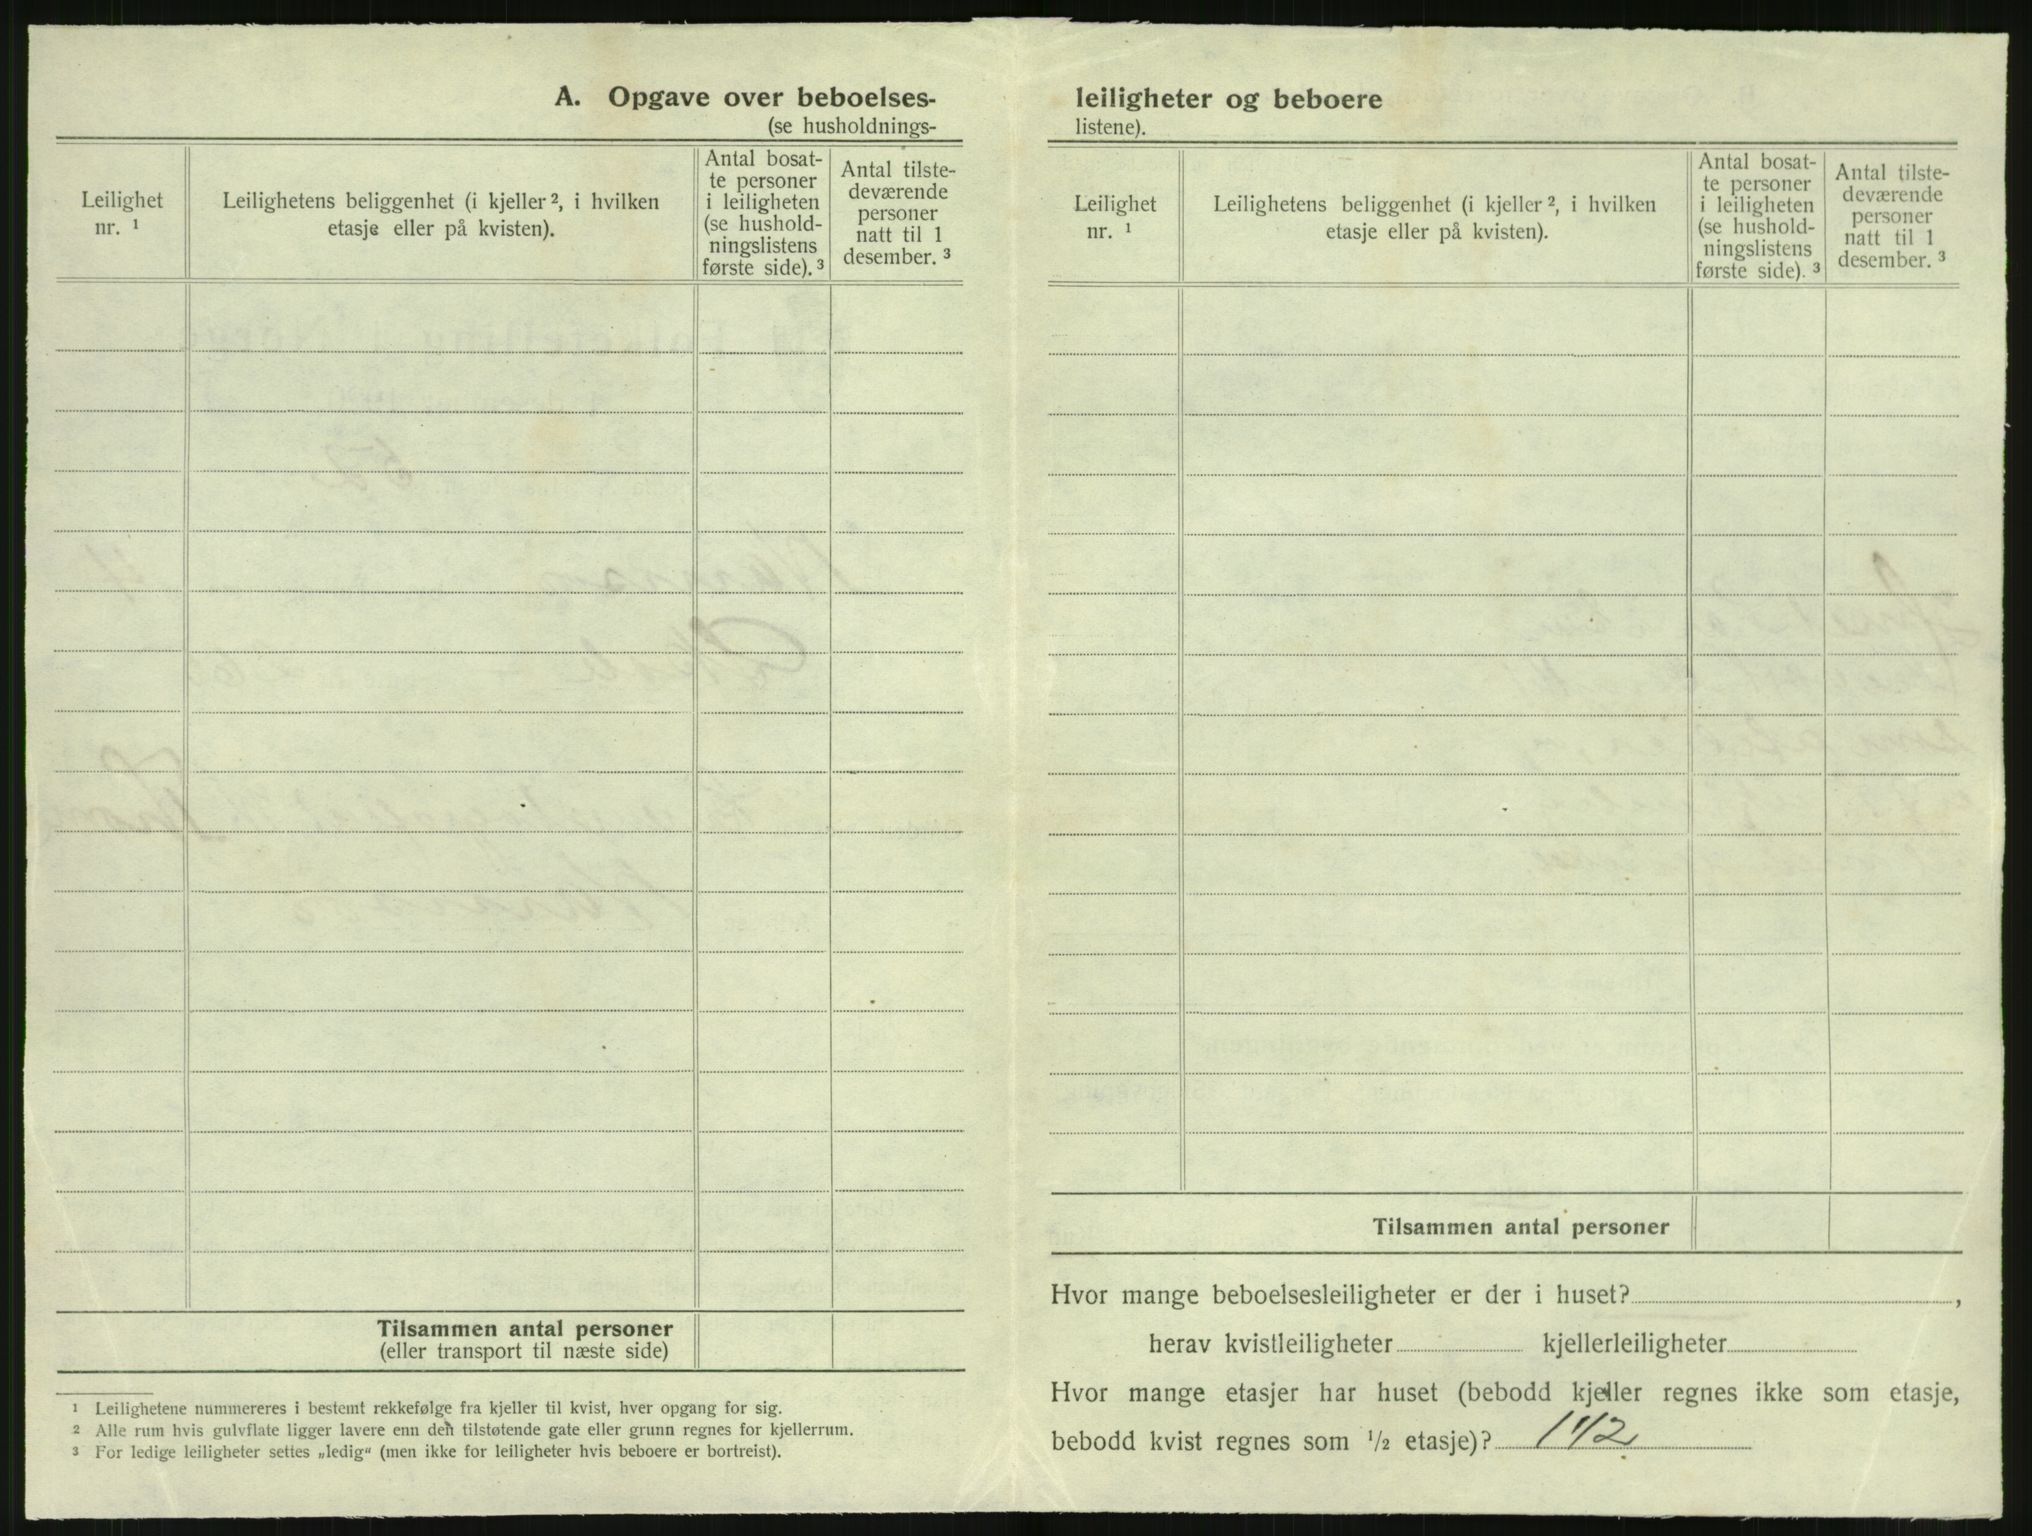 A. Opgave over beboelses-
(se husholdnings-
Leilighet
nr. ¹
Leilighetens beliggenhet (i kjeller ², i hvilken
etasje eller på kvisten).
Antal bosat-
te personer
i leiligheten
(se hushold-
ningslistens
første side). ³
Antal tilste-
deværende
personer
natt til 1
desember. ³
Tilsammen antal personer
(eller transport til næste side)
¹ Leilighetene nummereres i bestemt rekkefølge fra kjeller til kvist, hver opgang for sig.
² Alle rum hvis gulvflate ligger lavere enn den tilstøtende gate eller grunn regnes for kjellerrum.
³ For ledige leiligheter settes „ledig“ (men ikke for leiligheter hvis beboere er bortreist).
leiligheter og beboere
listene).
Leilighet
nr. ¹
Leilighetens beliggenhet (i kjeller ², i hvilken
etasje eller på kvisten).
Antal bosat-
te personer
i leiligheten
(se hushold-
ningslistens
første side). ³
Antal tilste-
deværende
personer
natt til 1
desember. ³
Tilsammen antal personer
Hvor mange beboelsesleiligheter er der i huset? ,
herav kvistleiligheter kjellerleiligheter
Hvor mange etasjer har huset (bebodd kjeller regnes ikke som etasje,
bebodd kvist regnes som ½ etasje)? 1 1/2